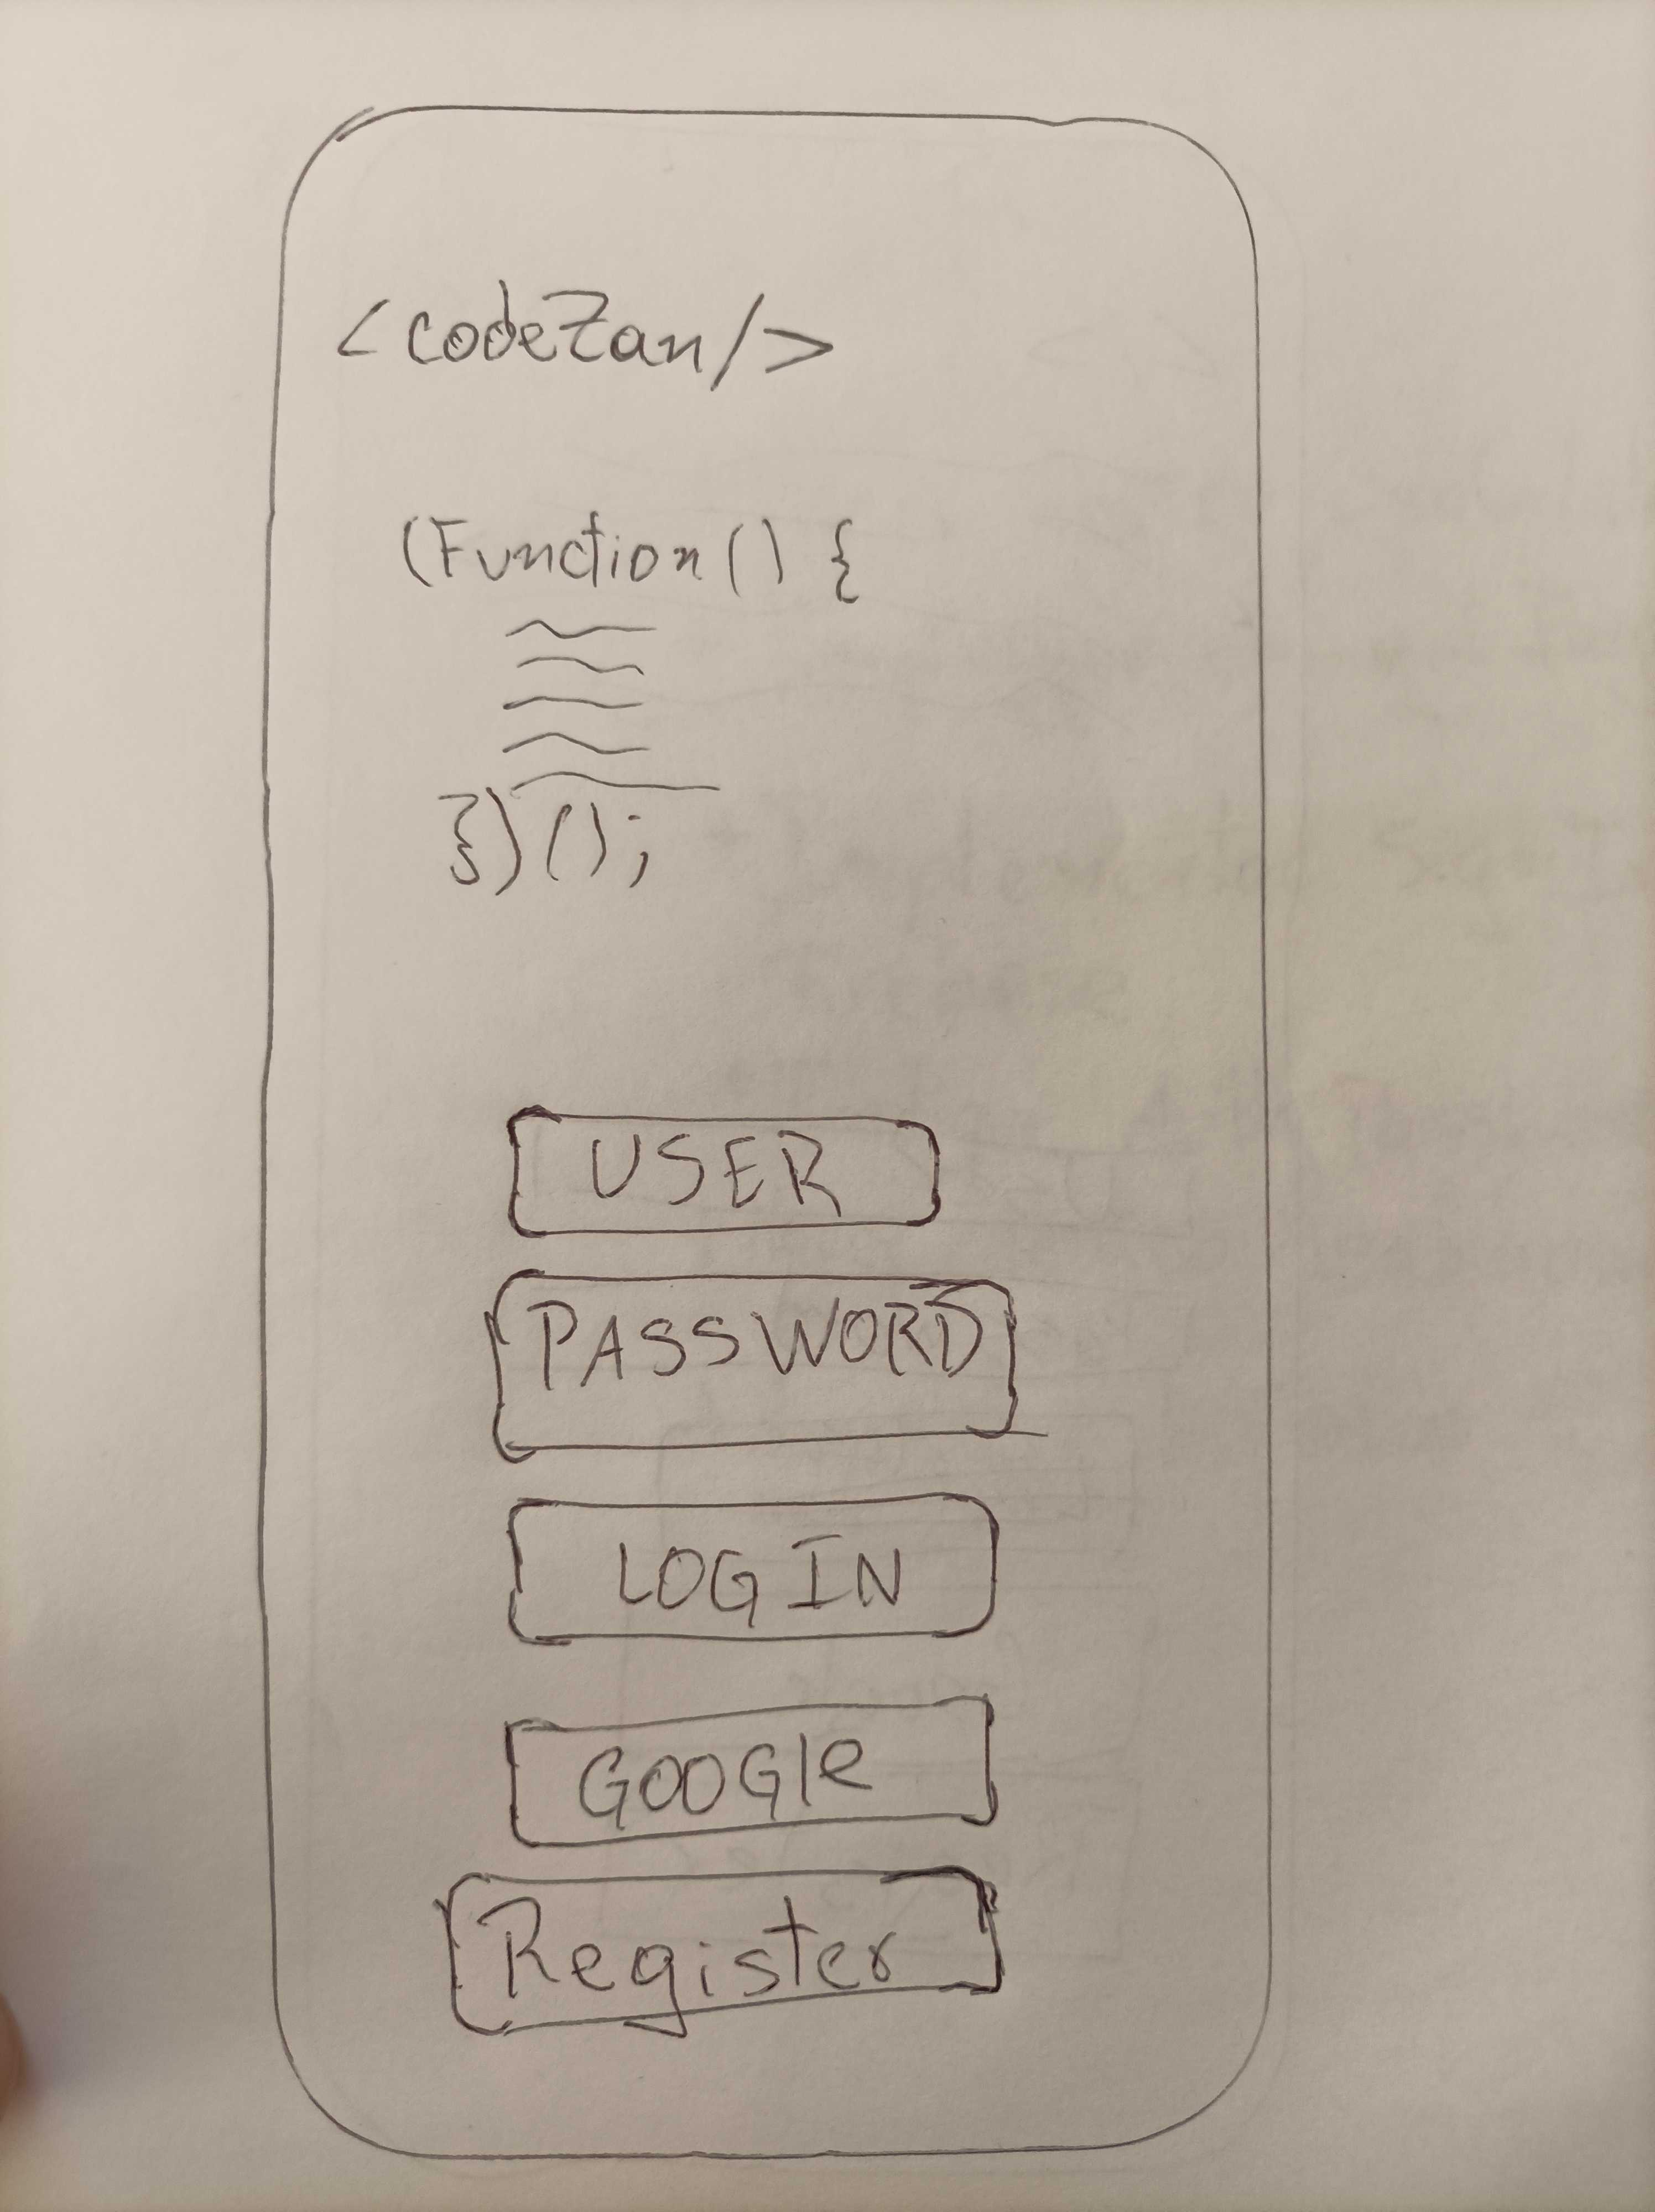 <codeZan/>
(Function() {
})();
USER
PASSWORD
LOGIN
GOOGle
Register